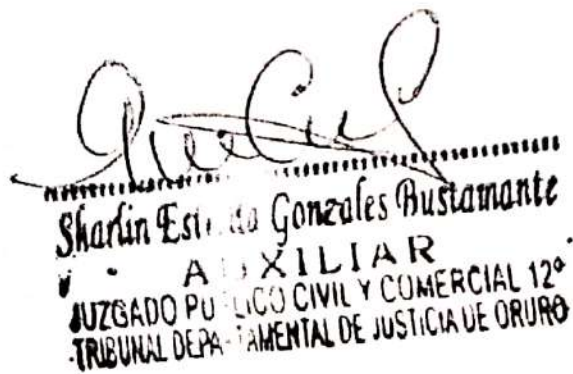 Sharlin Gonzales Bustamante
AUXILIAR
JUZGADO PUBLICO CIVIL Y COMERCIAL 12º
TRIBUNAL DEPARTAMENTAL DE JUSTICIA DE ORURO